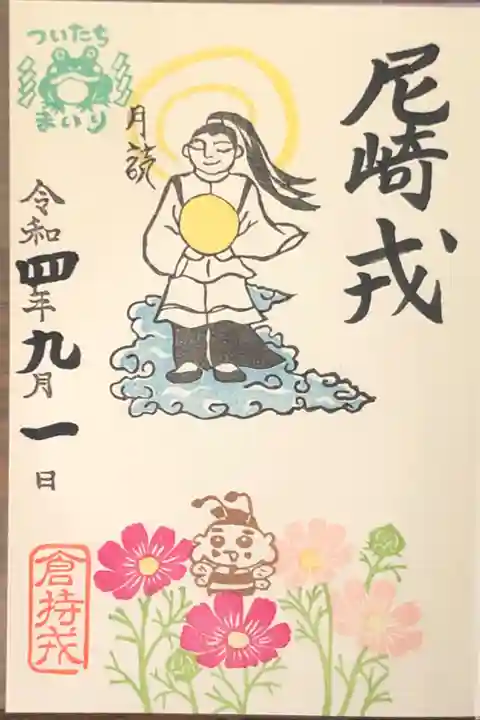 尼崎戎
月読
ついたち
まいり
令和四年九月一日
倉持戎